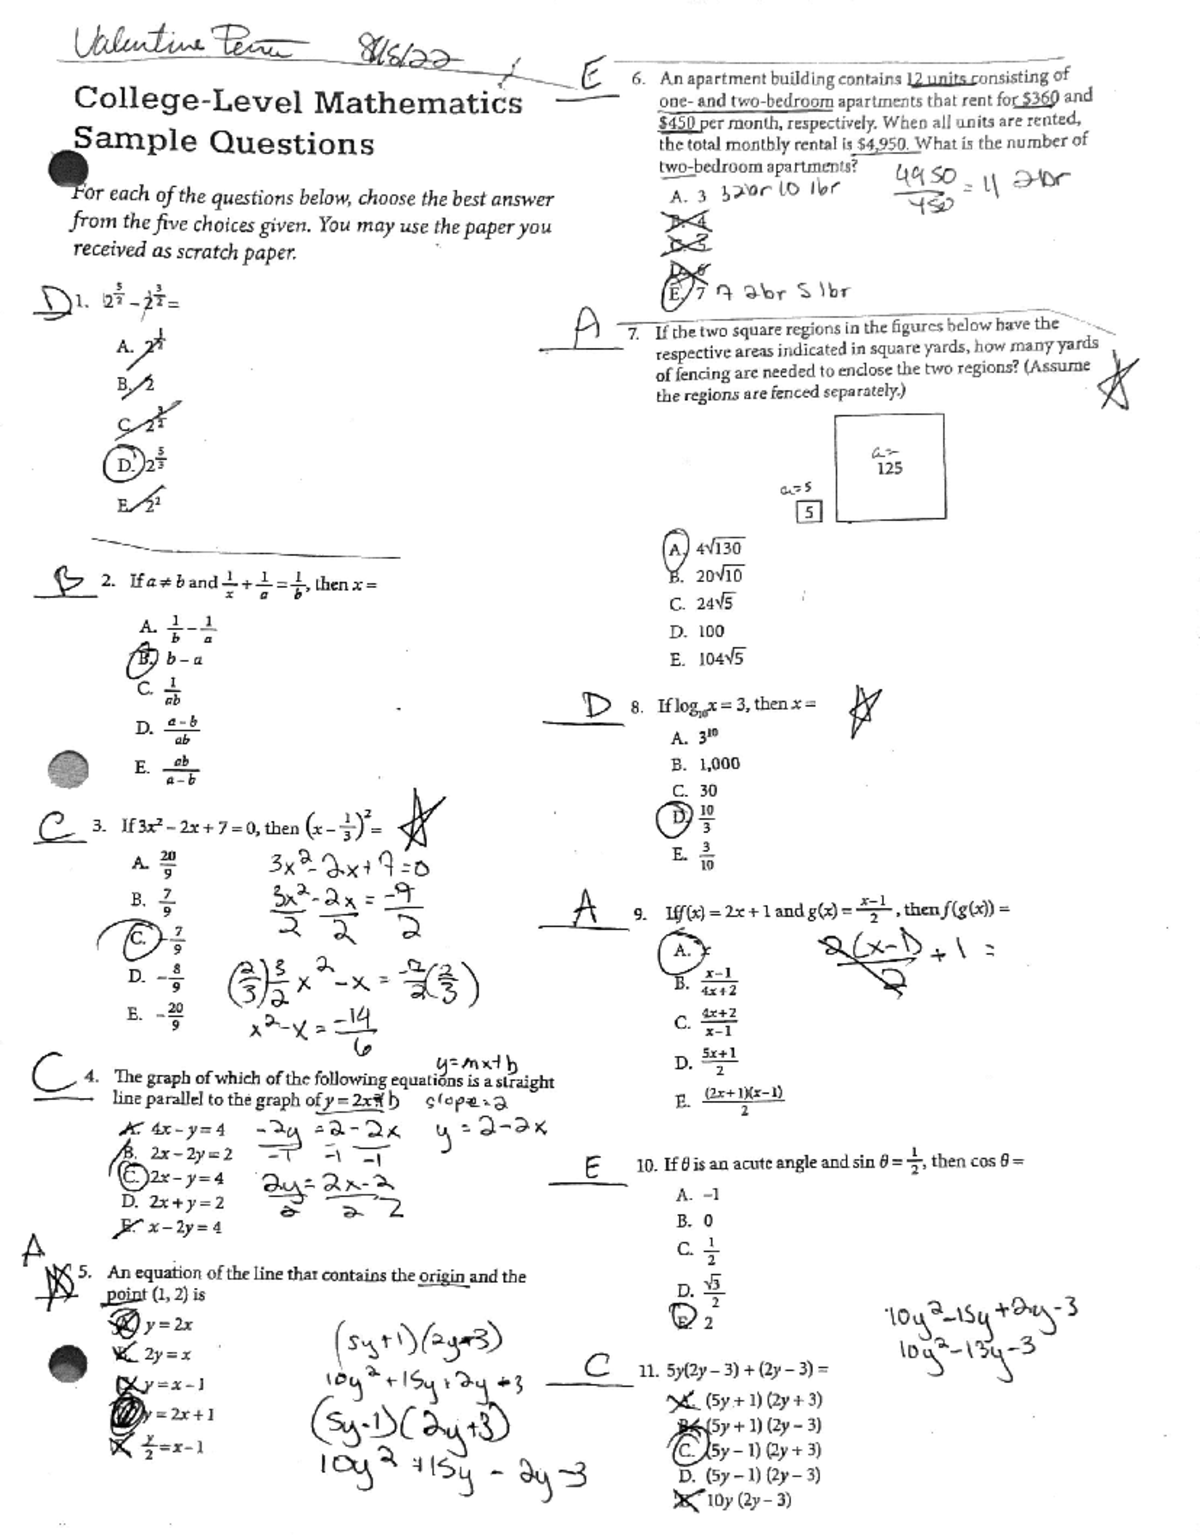 Valentine 8/8/22
College-Level Mathematics
Sample Questions
For each of the questions below, choose the best answer
from the five choices given. You may use the paper you
received as scratch paper.
D 1. 2^{5/2} - 2^{3/2} =
A. 2^{1/2}
B. 2
C. 2^{3/2}
D. 2^{5/3}
E. 2^2
B 2. If a ≠ b and 1/x + 1/a = 1/b, then x =
A. 1/b - 1/a
B. b - a
C. 1/ab
D. a - b/ab
E. ab/a - b
C 3. If 3x² - 2x + 7 = 0, then (x - 1/3)² =
A. 20/9
B. 7/9
C. -7/9
D. -8/9
E. -20/9
3x² - 2x + 7 = 0
3x²/2 - 2x/2 = -9/2
(2/3) 3/2 x² - x = -7/2 (2/3)
x² - x = -14/6
C 4. The graph of which of the following equations is a straight
line parallel to the graph of y = 2x? b
y = mx + b
slope = 2
A. 4x - y = 4
B. 2x - 2y = 2
C. 2x - y = 4
D. 2x + y = 2
E. x - 2y = 4
-2y/-1 = 2/-1 - 2x/-1
y = 2 - 2x
2y/2 = 2x - 2/2
A
5. An equation of the line that contains the origin and the
point (1, 2) is
A. y = 2x
B. 2y = x
C. y = x - 1
D. y = 2x + 1
E. y/2 = x - 1
(5y+1)(2y+3)
10y² + 15y + 2y + 3
(5y-1)(2y+3)
10y² + 15y - 2y - 3
E 6. An apartment building contains 12 units consisting of
one- and two-bedroom apartments that rent for $360 and
$450 per month, respectively. When all units are rented,
the total monthly rental is $4,950. What is the number of
two-bedroom apartments?
A. 3 3 2br 10 1br
B. 4
C. 5
D. 6
E. 7 7 2br 5 1br
4950/450 = 11 2br
A 7. If the two square regions in the figures below have the
respective areas indicated in square yards, how many yards
of fencing are needed to enclose the two regions? (Assume
the regions are fenced separately.)
a=
125
a=5
5
A. 4√130
B. 20√10
C. 24√5
D. 100
E. 104√5
D 8. If log₁₀x = 3, then x =
A. 3^{10}
B. 1,000
C. 30
D. 10/3
E. 3/10
A 9. If f(x) = 2x + 1 and g(x) = x-1/2, then f(g(x)) =
A. x
B. x-1/4x+2
C. 4x+2/x-1
D. 5x+1/2
E. (2x+1)(x-1)/2
2(x-1)/2 + 1 =
E 10. If θ is an acute angle and sin θ = 1/2, then cos θ =
A. -1
B. 0
C. 1/2
D. √3/2
E. 2
10y² - 15y + 2y - 3
10y² - 13y - 3
C 11. 5y(2y - 3) + (2y - 3) =
A. (5y + 1) (2y + 3)
B. (5y + 1) (2y - 3)
C. (5y - 1) (2y + 3)
D. (5y - 1) (2y - 3)
E. 10y (2y - 3)